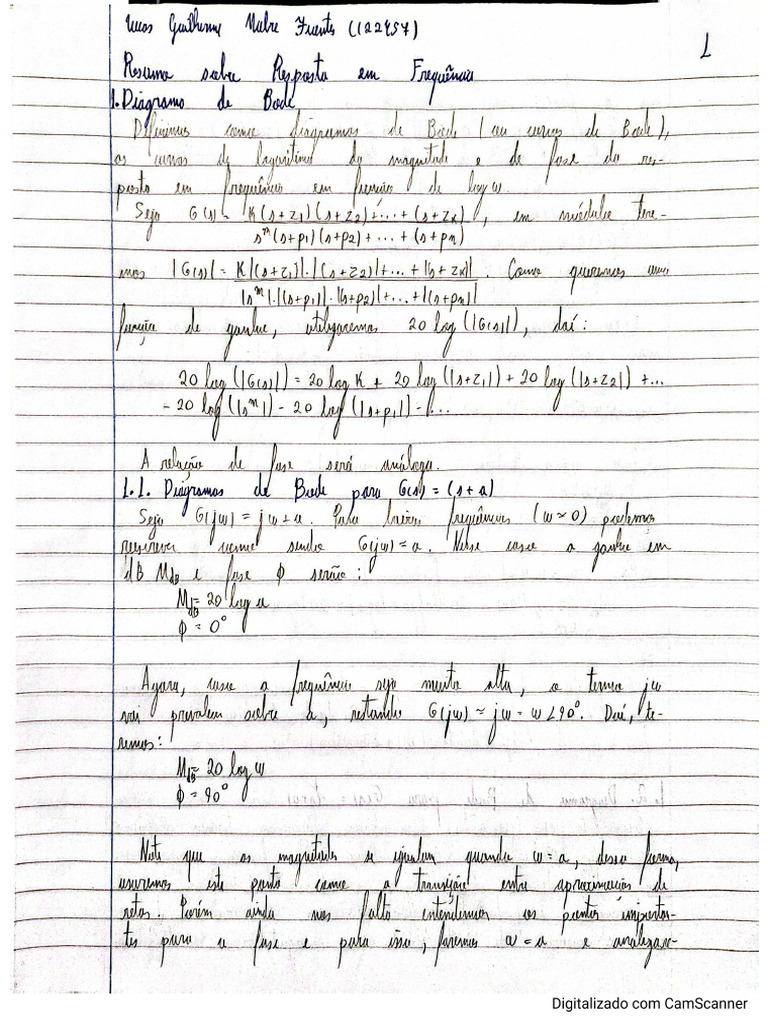 Guilherme Nobre Fuentes (122457)
1
Resumo sobre Resposta em Frequência
1. Diagrama de Bode
Definimos como diagramas de Bode (ou curvas de Bode),
as curvas de logaritimo da magnitude e de fase da res-
posta em frequência em função de log ω.
Seja G(s) = K(s+z₁)(s+z₂)+...+(s+zₖ) / sᵐ(s+p₁)(s+p₂)+...+(s+pₙ) , em módulo tere-
mos |G(s)| = K|(s+z₁)|·|(s+z₂)|+...+|(s+zₖ)| / |sᵐ|·|(s+p₁)|·|(s+p₂)|+...+|(s+pₙ)| . Como queremos uma
função de ganho, utilizaremos 20 log(|G(s)|), daí:
20 log(|G(s)|) = 20 log K + 20 log(|s+z₁|) + 20 log(|s+z₂|) +...
- 20 log(|sᵐ|) - 20 log(|s+p₁|) - ...
A relação de fase será análoga.
1.1. Diagramas de Bode para G(s) = (s+a)
Seja G(jω) = jω + a. Para baixas frequências (ω≈0) podemos
reescrever como sendo G(jω) ≈ a. Nesse caso o ganho em
dB M_dB e fase Φ serão:
M_dB = 20 log a
Φ = 0°
Agora, caso a frequência seja muito alta, o termo jω
vai prevalecer sobre a, restando G(jω) ≈ jω = ω∠90°. Daí, te-
remos:
M_dB = 20 log ω
Φ = 90°
Note que as magnitudes se igualam quando ω = a, dessa forma,
usaremos este ponto como a transição entre aproximações de
retas. Porém ainda nos falta entendermos os pontos importan-
tes para a fase e para isso, faremos ω = a e analizan-
Digitalizado com CamScanner